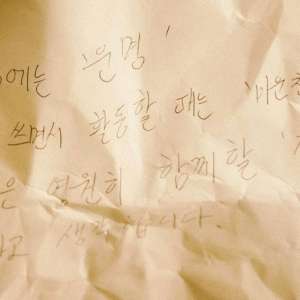 에는 '운명'
쓰면서 활동할 때는 '마
은 영원히 함께할 '
고 생각합니다.